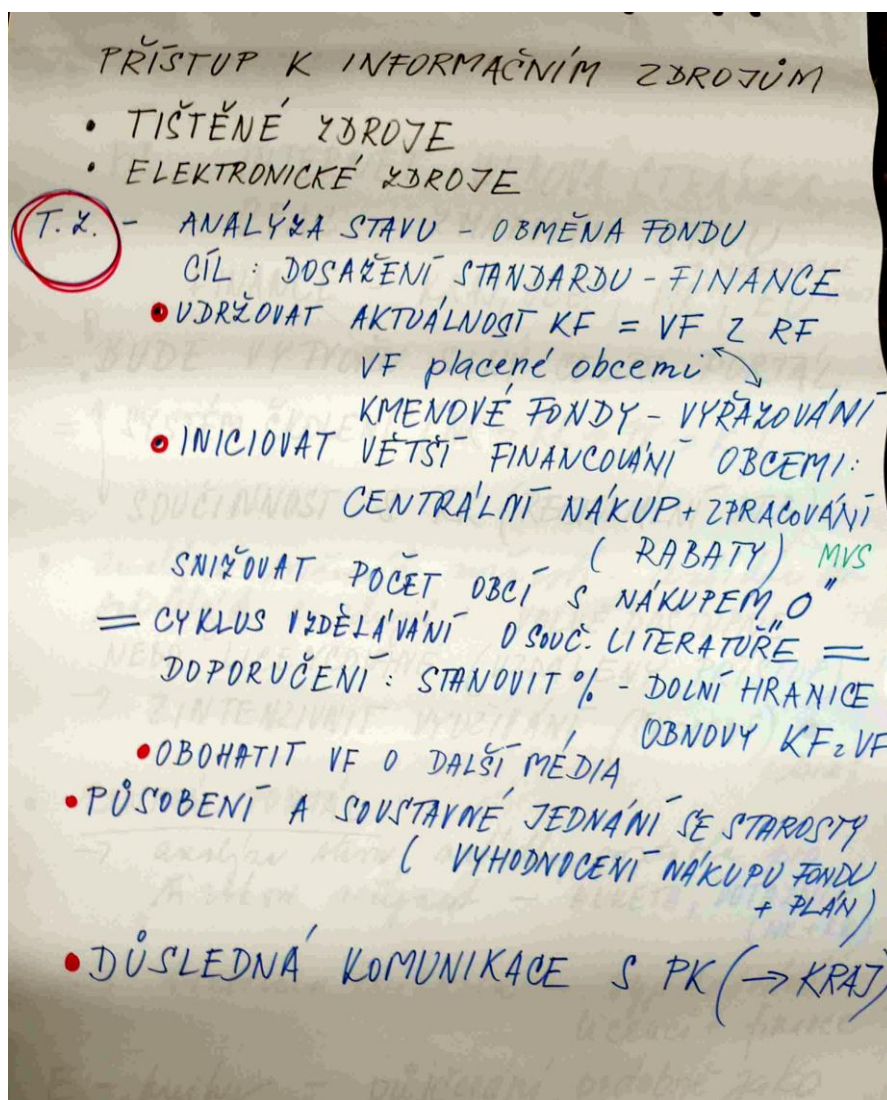 PŘÍSTUP K INFORMAČNÍM ZDROJŮM
• TIŠTĚNÉ ZDROJE
• ELEKTRONICKÉ ZDROJE
T. Z. - ANALÝZA STAVU - OBMĚNA FONDU
CÍL : DOSAŽENÍ STANDARDU - FINANCE
• UDRŽOVAT AKTUÁLNOST KF = VF Z RF
VF placené obcemi
KMENOVÉ FONDY - VYŘAZOVÁNÍ
• INICIOVAT VĚTŠÍ FINANCOVÁNÍ OBCEMI:
CENTRÁLNÍ NÁKUP + ZPRACOVÁNÍ
( RABATY) MVS
SNIŽOVAT POČET OBCÍ S NÁKUPEM „0"
= CYKLUS VZDĚLÁVÁNÍ O SOUČ. LITERATUŘE =
DOPORUČENÍ : STANOVIT % - DOLNÍ HRANICE
OBNOVY KF z VF
• OBOHATIT VF O DALŠÍ MÉDIA
• PŮSOBENÍ A SOUSTAVNÉ JEDNÁNÍ SE STAROSTY
( VYHODNOCENÍ NÁKUPU FONDU
+ PLÁN)
• DŮSLEDNÁ KOMUNIKACE S PK (→ KRAJ)